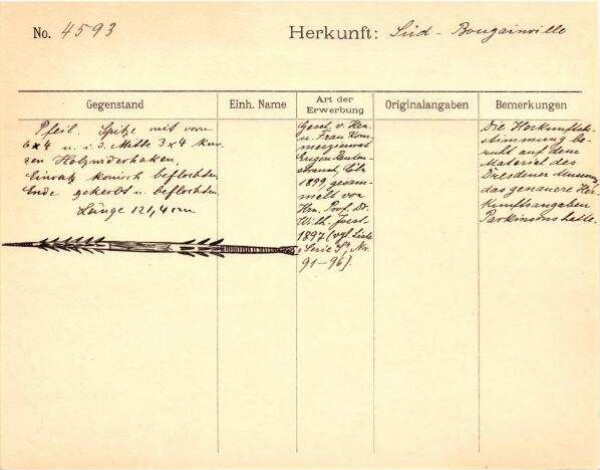 No. 4593
Herkunft: Süd - Bougainville
Gegenstand
Einh. Name
Art der Erwerbung
Originalangaben
Bemerkungen
Pfeil. Spitze mit vorn
6x4 u. i. d. Mitte 3x4 kur-
zen Holzwiderhaken.
Einsatz konisch beflochten
Ende gekerbt u. beflochten
Länge 121,4 cm
Gesch. v. Hrn.
u. Frau Kom-
merzienrat
Eugen Rauten-
strauch, Cöln
1899 gesam-
melt von
Hrn. Prof. Dr.
Wilh. Joest
1897 (vgl. Liste
Serie Nr.
91-96).
Die Herkunftsbe-
stimmung be-
ruht auf dem
Material des
Dresdener Museums,
das genauere Her-
kunftsangaben
Parkinsons hatte.